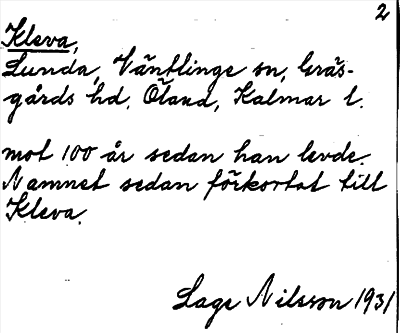 2
Kleva,
Lunda, Ventlinge sn, Gräs-
gårds hd. Öland, Kalmar l.
mot 100 år sedan han levde.
Namnet sedan förkortat till
Kleva.
Lage Nilsson 1931